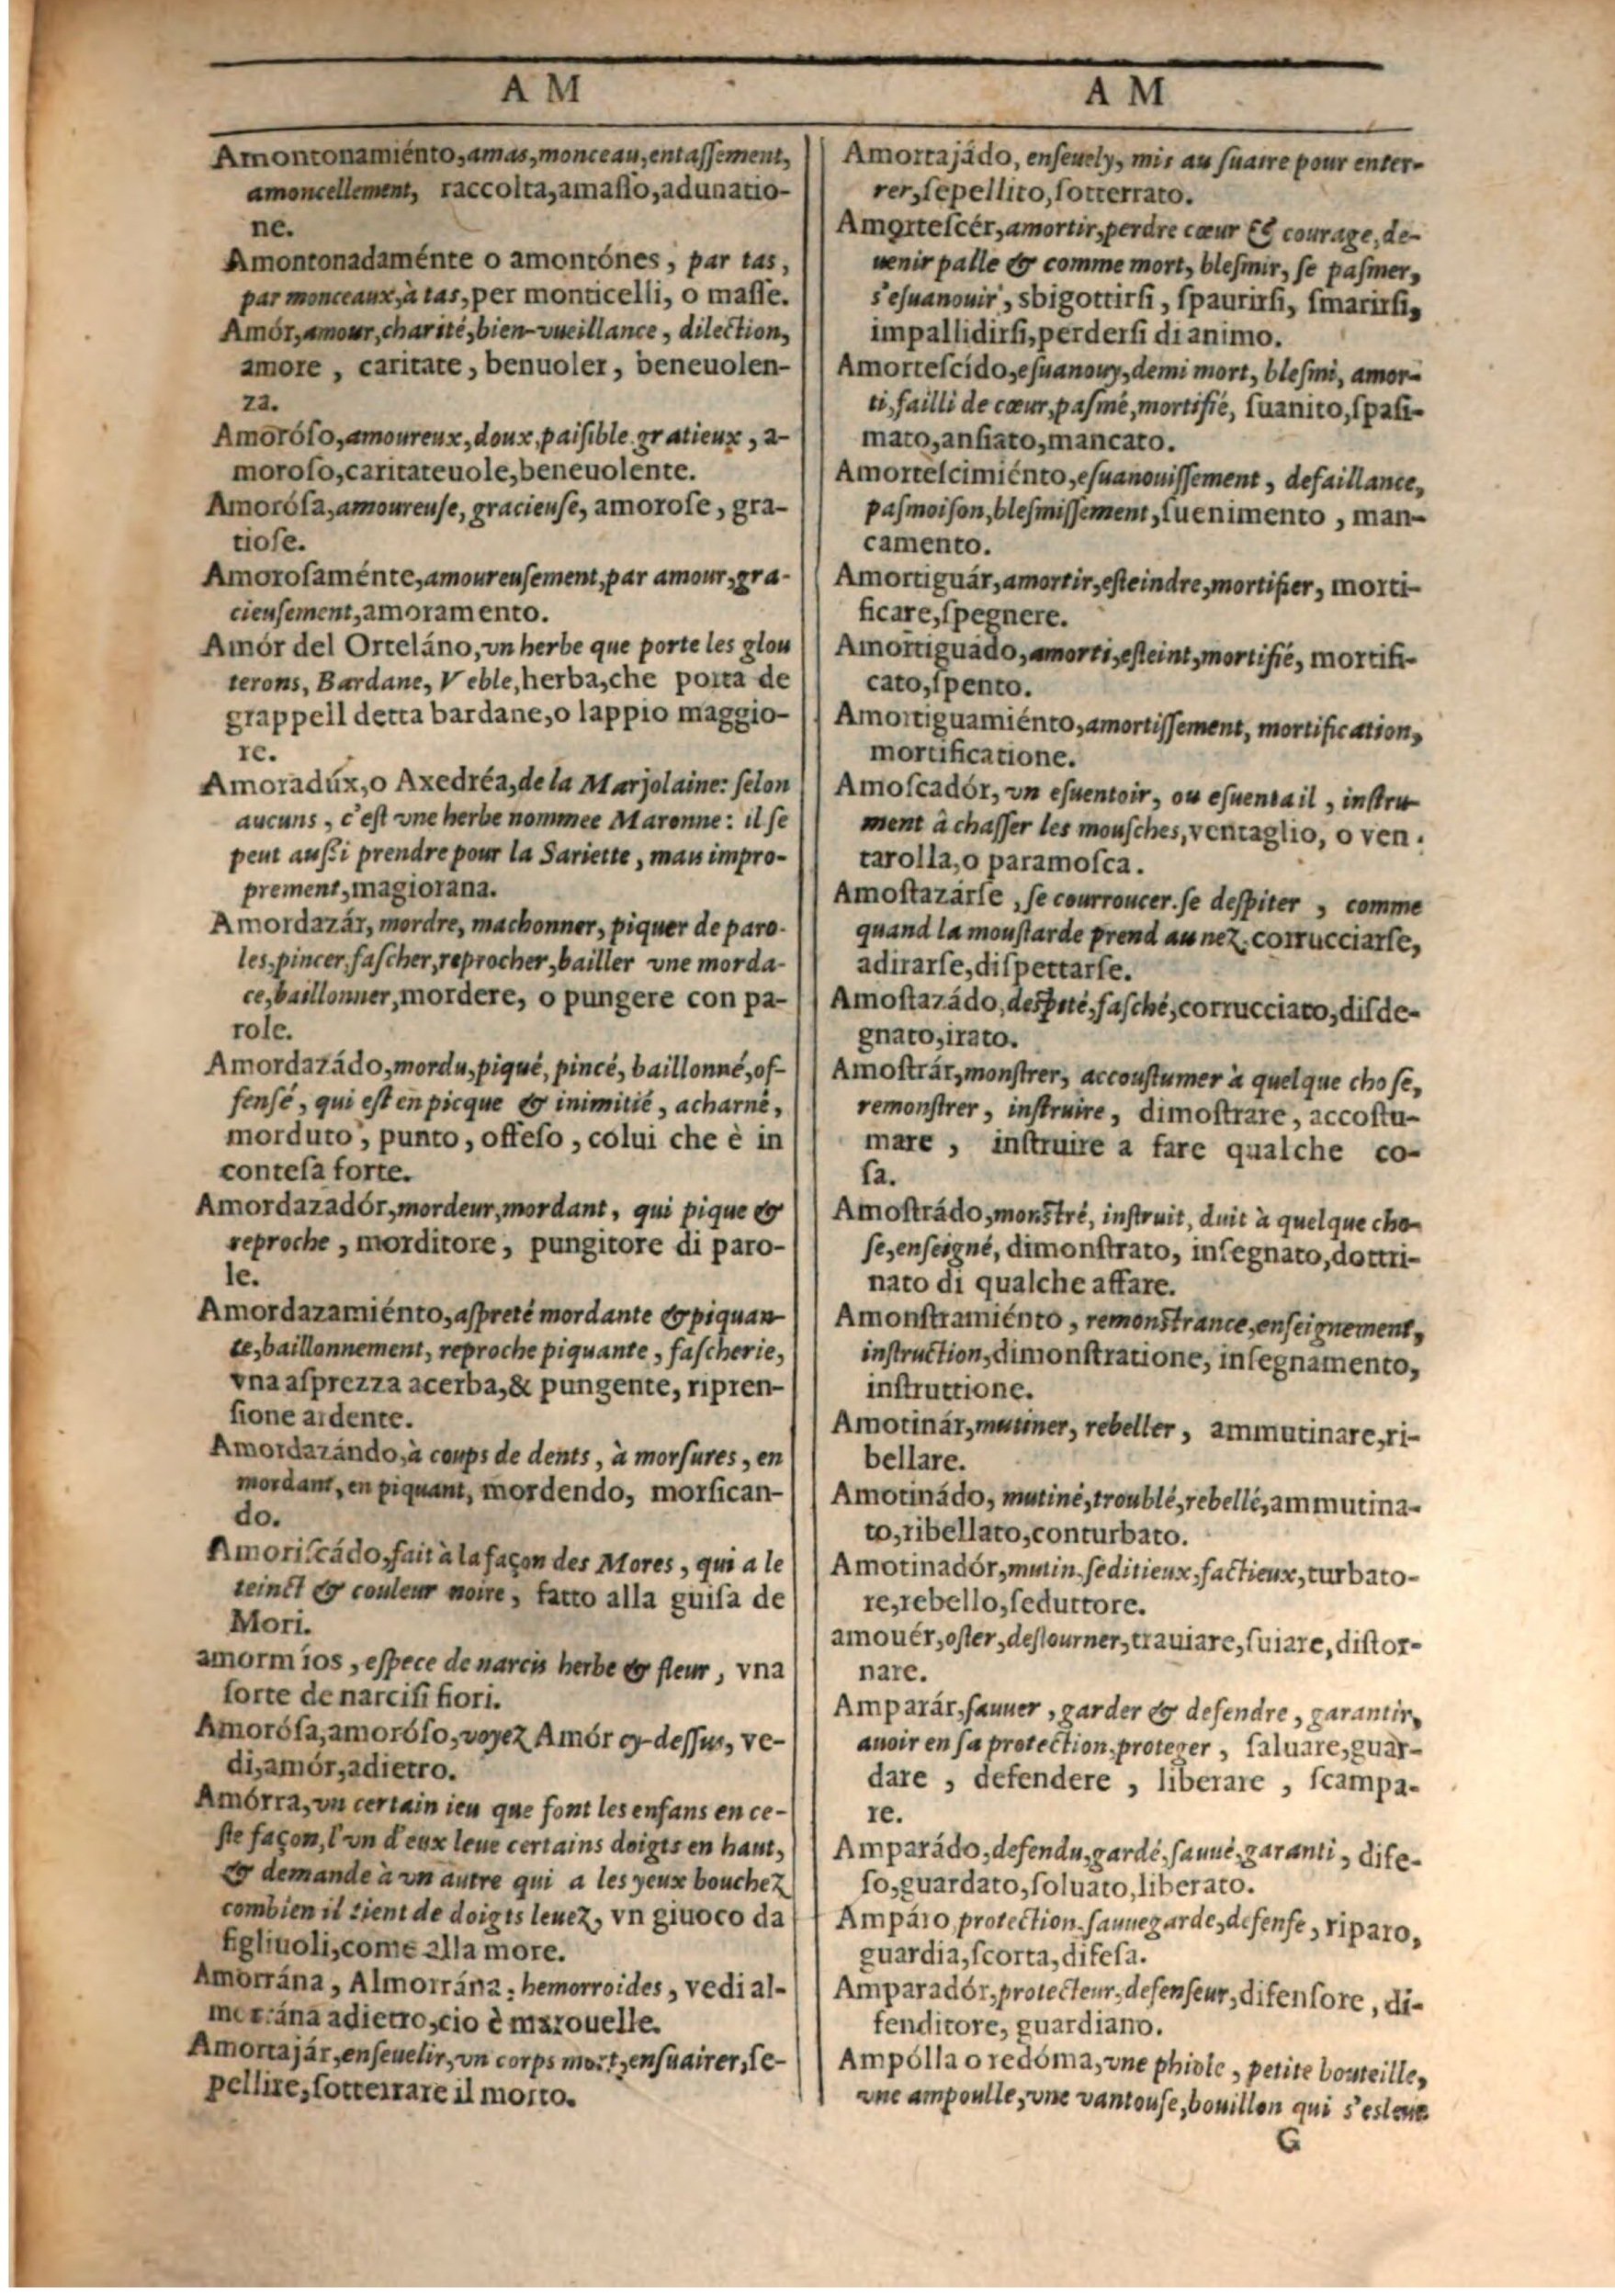 A M
Amontonamiénto, amas, monceau, entaſſement,
amoncellement, raccolta, amaſſo, adunatio-
ne.
Amontonadaménte o amontónes, par tas,
par monceaux, à tas, per monticelli, o maſſe.
Amór, amour, charité, bien-vueillance, dilection,
amore, caritate, benuoler, beneuolen-
za.
Amoróſo, amoureux, doux, paiſible, gratieux, a-
moroſo, caritateuole, beneuolente.
Amoróſa, amoureuſe, gracieuſe, amoroſe, gra-
tioſe.
Amoroſaménte, amoureuſement, par amour, gra-
cieuſement, amoramento.
Amór del Orteláno, vn herbe que porte les glou
terons, Bardane, Veble, herba, che porta de
grappell detta bardane, o lappio maggio-
re.
Amoradúx, o Axedréa, de la Marjolaine: ſelon
aucuns, c'eſt vne herbe nommee Maronne: il ſe
peut auſsi prendre pour la Sariette, mau impro-
prement, magiorana.
Amordazár, mordre, machonner, piquer de paro-
les, pincer, faſcher, reprocher, bailler vne morda-
ce, baillonner, mordere, o pungere con pa-
role.
Amordazádo, mordu, piqué, pincé, baillonné, of-
fensé, qui eſt en picque & inimitié, acharné,
morduto, punto, offeſo, colui che è in
conteſa forte.
Amordazadór, mordeur, mordant, qui pique &
reproche, morditore, pungitore di paro-
le.
Amordazamiénto, aſpreté mordante & piquan-
te, baillonnement, reproche piquante, faſcherie,
vna aſprezza acerba, & pungente, ripren-
ſione ardente.
Amordazándo, à coups de dents, à morſures, en
mordant, en piquant, mordendo, morſican-
do.
Amoriſcádo, fait à la façon des Mores, qui a le
teinct & couleur noire, fatto alla guiſa de
Mori.
amorm íos, eſpece de narcis herbe & fleur, vna
ſorte de narciſi fiori.
Amoróſa, amoróſo, voyez Amór cy-deſſus, ve-
di, amór, adietro.
Amórra, vn certain ieu que font les enfans en ce-
ſte façon, l'vn d'eux leue certains doigts en haut,
& demande à vn autre qui a les yeux bouchez
combien il tient de doigts leuez, vn giuoco da
figliuoli, come alla more.
Amorrána, Almorrána: hemorroides, vedi al-
morrána adietro, cio è marouelle.
Amortajár, enſeuelir, vn corps mort, enſuairer, ſe-
pellire, ſotterrare il morto.
A M
Amortajádo, enſeuely, mis au ſuaire pour enter-
rer, ſepellito, ſotterrato.
Amorteſcér, amortir, perdre cœur & courage, de-
uenir palle & comme mort, bleſmir, ſe paſmer,
s'eſuanouir, sbigottirſi, ſpaurirſi, ſmarirſi,
impallidirſi, perderſi di animo.
Amorteſcído, eſuanouy, demi mort, bleſmi, amor-
ti, failli de cœur, paſmé, mortifié, ſuanito, ſpaſi-
mato, anſiato, mancato.
Amorteſcimiénto, eſuanouiſſement, defaillance,
paſmoiſon, bleſmiſſement, ſuenimento, man-
camento.
Amortiguár, amortir, eſteindre, mortifier, morti-
ficare, ſpegnere.
Amortiguádo, amorti, eſteint, mortifié, mortifi-
cato, ſpento.
Amortiguamiénto, amortiſſement, mortification,
mortificatione.
Amoſcadór, vn eſuentoir, ou eſuentail, inſtru-
ment à chaſſer les mouſches, ventaglio, o ven-
tarolla, o paramoſca.
Amoſtazárſe, ſe courroucer, ſe deſpiter, comme
quand la mouſtarde prend au nez, corrucciarſe,
adirarſe, diſpettarſe.
Amoſtazádo, deſpité, faſché, corrucciato, diſde-
gnato, irato.
Amoſtrár, monſtrer, accouſtumer à quelque choſe,
remonſtrer, inſtruire, dimoſtrare, accoſtu-
mare, inſtruire a fare qualche co-
ſa.
Amoſtrádo, monſtré, inſtruit, duit à quelque cho-
ſe, enſeigné, dimonſtrato, inſegnato, dottri-
nato di qualche affare.
Amonſtramiénto, remonſtrance, enſeignement,
inſtruction, dimonſtratione, inſegnamento,
inſtruttione.
Amotinár, mutiner, rebeller, ammutinare, ri-
bellare.
Amotinádo, mutiné, troublé, rebellé, ammutina-
to, ribellato, conturbato.
Amotinadór, mutin, ſeditieux, factieux, turbato-
re, rebello, ſeduttore.
amouér, oſter, deſtourner, trauiare, ſuiare, diſtor-
nare.
Amparár, ſauuer, garder & defendre, garantir,
auoir en ſa protection, proteger, ſaluare, guar-
dare, defendere, liberare, ſcampa-
re.
Amparádo, defendu, gardé, ſauué, garanti, dife-
ſo, guardato, ſoluato, liberato.
Ampáro protection, ſauuegarde, defenſe, riparo,
guardia, ſcorta, difeſa.
Amparadór, protecteur, defenſeur, difenſore, di-
fenditore, guardiano.
Ampólla o redóma, vne phiole, petite bouteille,
vne ampoulle, vne vantouſe, bouillon qui s'esleue
G